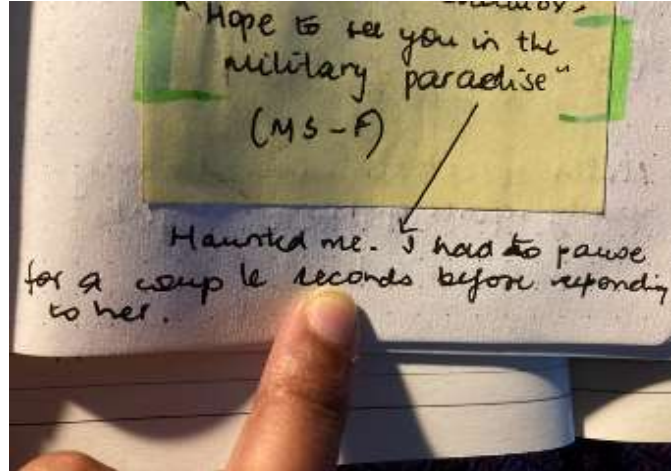 "Hope to see you in the
military paradise"
(MS-F)
Haunted me. I had to pause
for a couple seconds before reponding
to her.